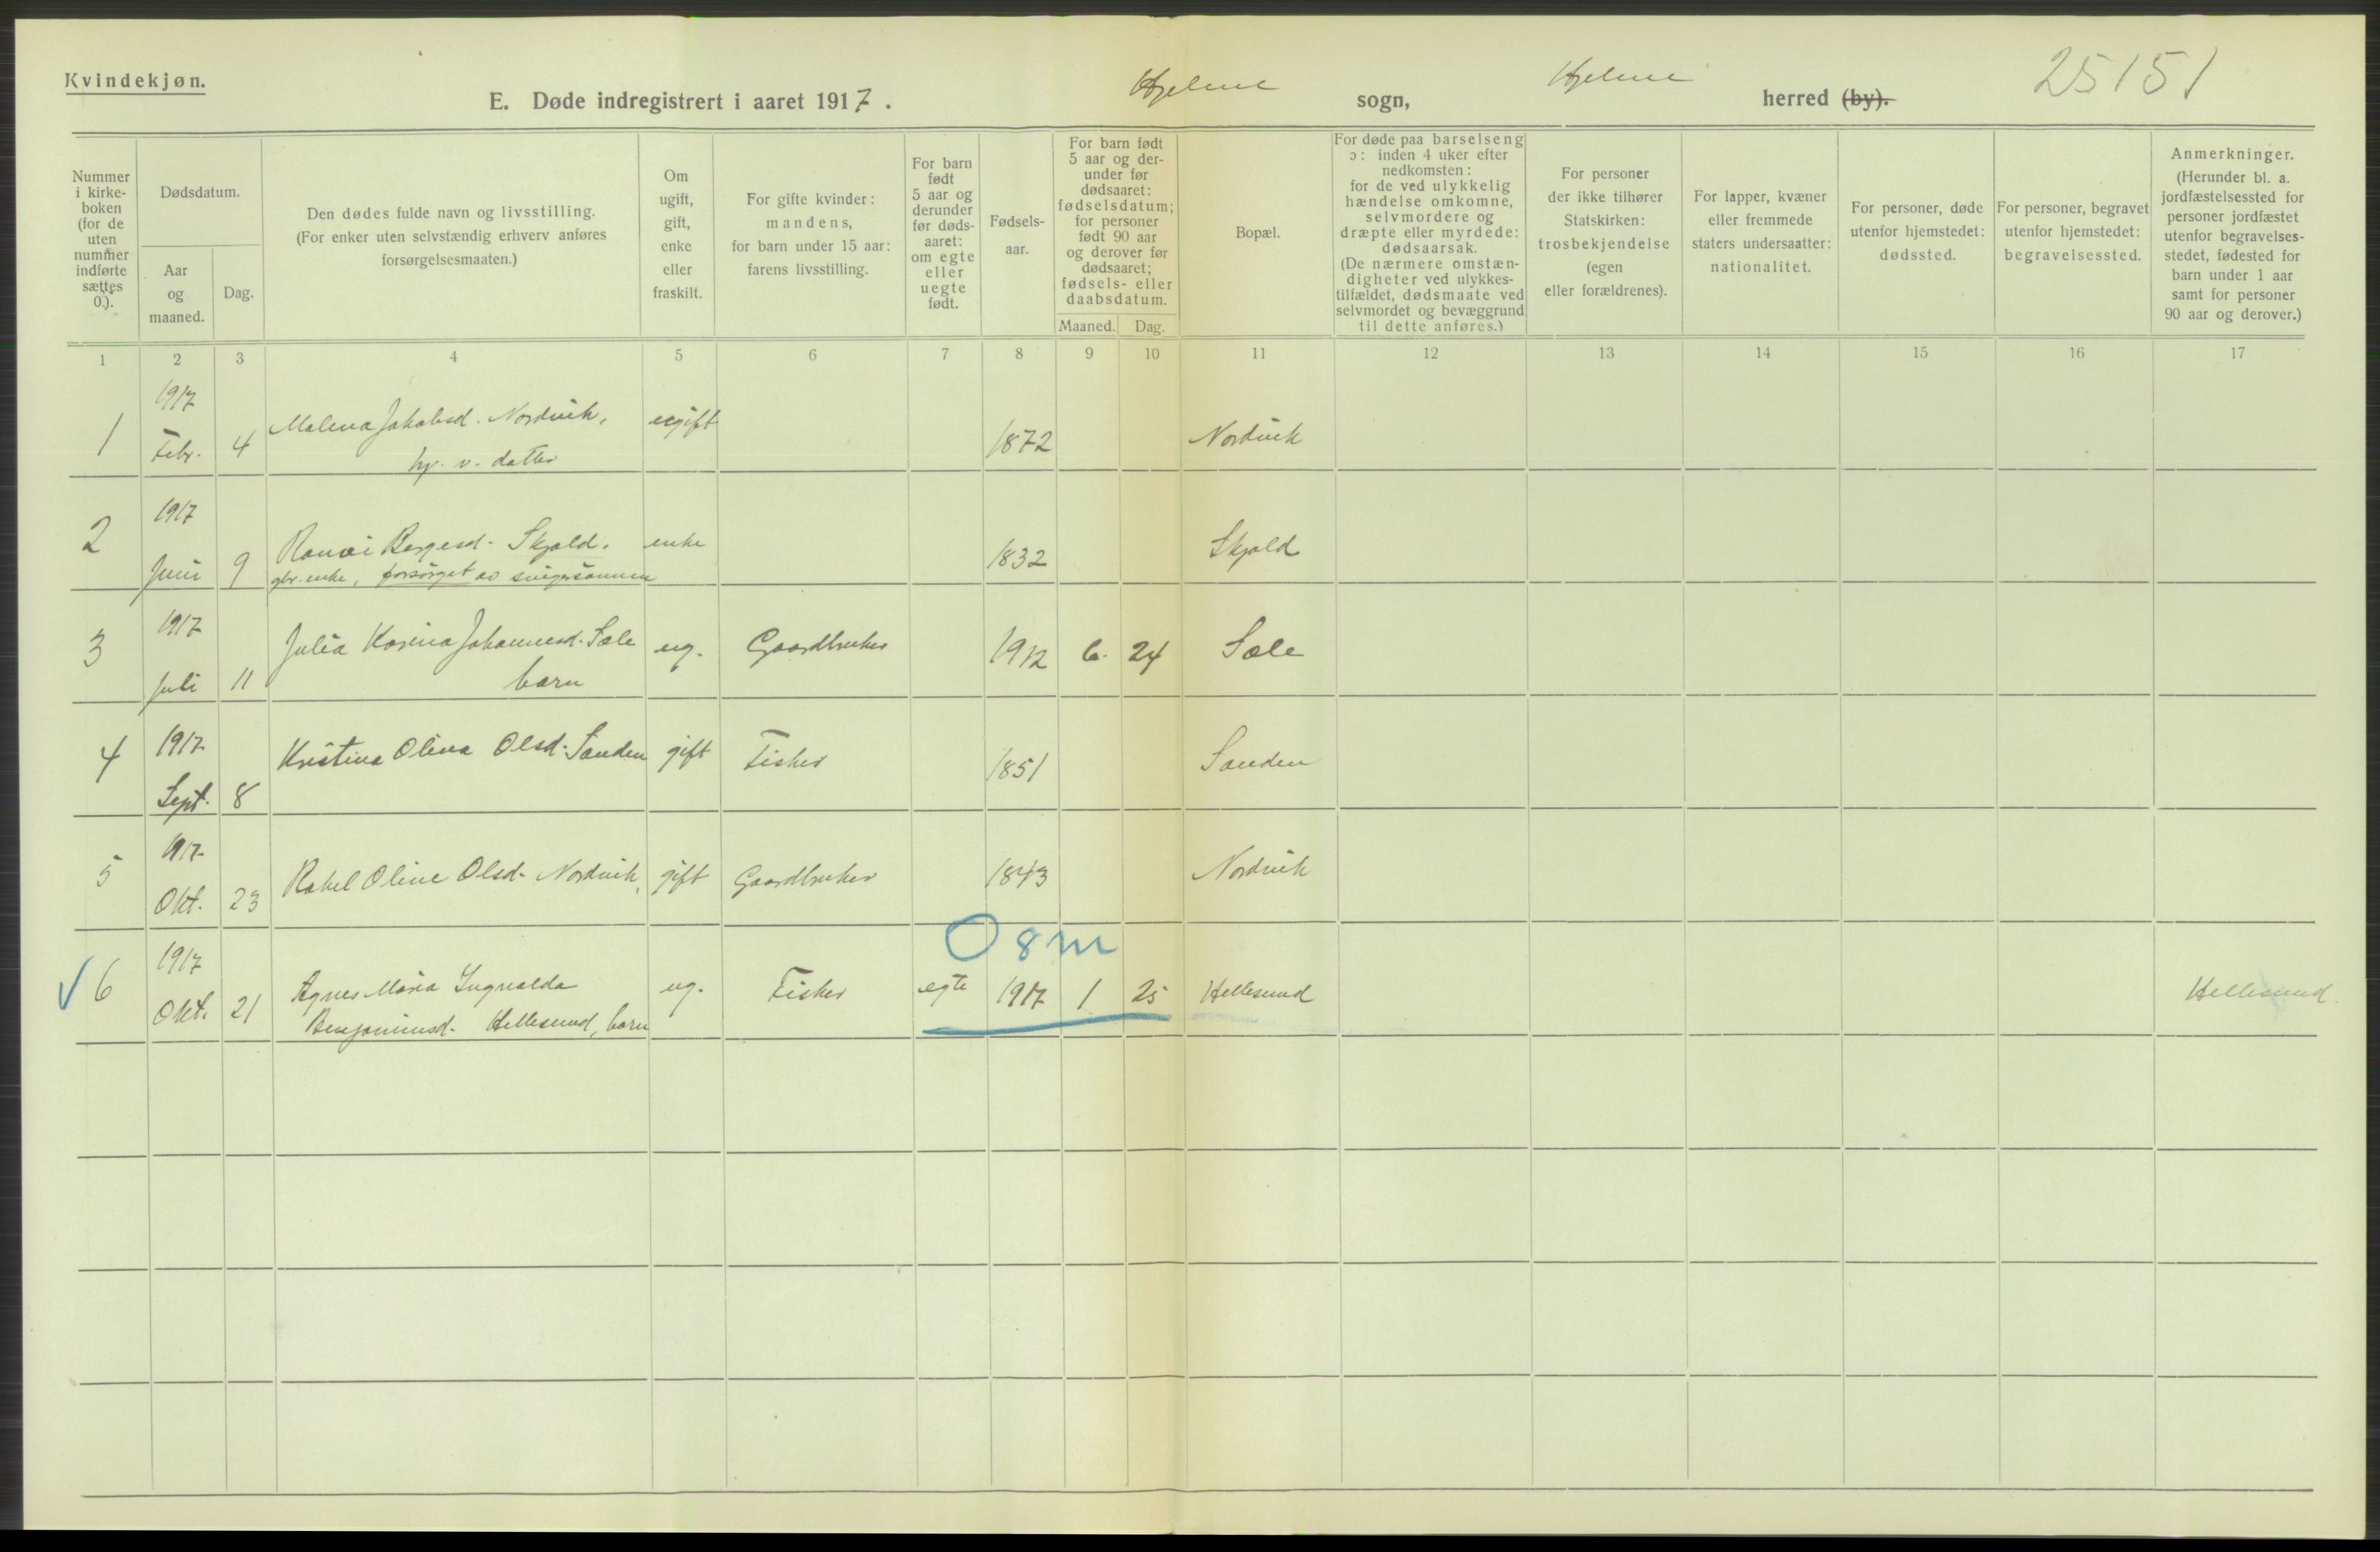 Kvindekjøn.
E. Døde indregistrert i aaret 1917. Hjelme sogn, Hjelme herred (by).
25151
Nummer i kirke-
boken
(for de
uten
nummer
indførte
sættes
0.).
Dødsdatum.
Aar
og
maaned.
Dag.
Den dødes fulde navn og livsstilling.
(For enker uten selvstændig erhverv anføres
forsørgelsesmaaten.)
Om
ugift,
gift,
enke
eller
fraskilt.
For gifte kvinder:
mandens,
for barn under 15 aar:
farens livsstilling.
For barn
født
5 aar og
derunder
før døds-
aaret:
om egte
eller
uegte
født.
Fødsels-
aar.
For barn født
5 aar og der-
under før
dødsaaret:
fødselsdatum;
for personer
født 90 aar
og derover før
dødsaaret;
fødsels- eller
daabsdatum.
Maaned. Dag.
Bopæl.
For døde paa barselseng
ɔ: inden 4 uker efter
nedkomsten:
for de ved ulykkelig
hændelse omkomne,
selvmordere og
dræpte eller myrdede:
dødsaarsak.
(De nærmere omstæn-
digheter ved ulykkes-
tilfældet, dødsmaate ved
selvmordet og bevæggrund
til dette anføres.)
For personer
der ikke tilhører
Statskirken:
trosbekjendelse
(egen
eller forældrenes).
For lapper, kvæner
eller fremmede
staters undersaatter:
nationalitet.
For personer, døde
utenfor hjemstedet:
dødssted.
For personer, begravet
utenfor hjemstedet:
begravelsessted.
Anmerkninger.
(Herunder bl. a.
jordfæstelsessted for
personer jordfæstet
utenfor begravelses-
stedet, fødested for
barn under 1 aar
samt for personer
90 aar og derover.)
1 2 3 4 5 6 7 8 9 10 11 12 13 14 15 16 17
1917
1 Febr. 4 Malena Jakobsd. Nordvik, ugift 1872 Nordvik
hj. v. datter
1917
2 Juni 9 Bergesd. Skjold. enke 1832 Skjold
gbr. enke, forsörget av svigersönnen
1917
3 Juli 11 Julia Karina Johannesd. Sæle ug. Gaardbruker 1912 6. 24 Sæle
barn
1917
4 Sept. 8 Kristina Olina Olsd. Sanden gift Fisker 1851 Sanden
1917
5 Okt. 23 Rakel Oline Olsd. Nordvik, gift Gaardbruker 1843 Nordvik
0 8m
1917
6 Okt. 21 Agnes Maria Ingvalda ug. Fisker egte 1917 1 25 Hellesund Hellesund.
Benjaminsd. Hellesund, barn